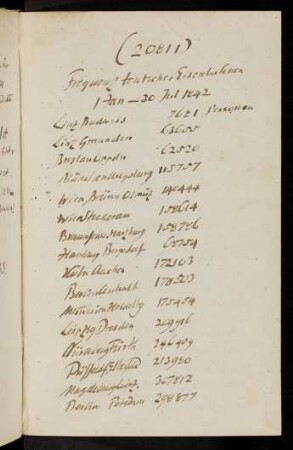 (20811)
Frequenz deutscher Eisenbahnen
1 Jan — 30 Jul 1842
Linz Budweis 7681 Personen
Linz Gmunden 63655
Breslau Oppeln 62520
München Augsburg 115757
Wien Brünn Olmütz 144444
Wien Stockerau 158614
Braunschw Harzburg 158786
Hamburg Bergedorf 68754
Köln Aachen 172103
Berlin Anhalt 178503
Mannheim Heidelbg 175454
Leipzig Dresden 209996
Nürnberg Fürth 246409
Düsseldf Elberfeld 213920
Magdeburg Leipz. 307812
Berlin Potsdam 298877